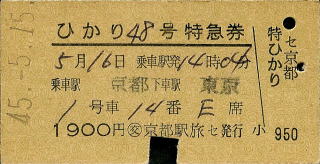 ひかり48号 特急券
5月16日 乗車駅発14時04分
乗車駅 京都 下車駅 東京
1号車 14番 E席
1900円 交 京都駅旅セ発行 小 950
セ京都
特ひかり
45.5.15